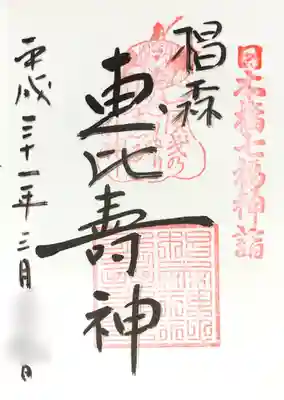 日本橋七福神詣
椙森
恵比寿神
平成三十一年三月 日